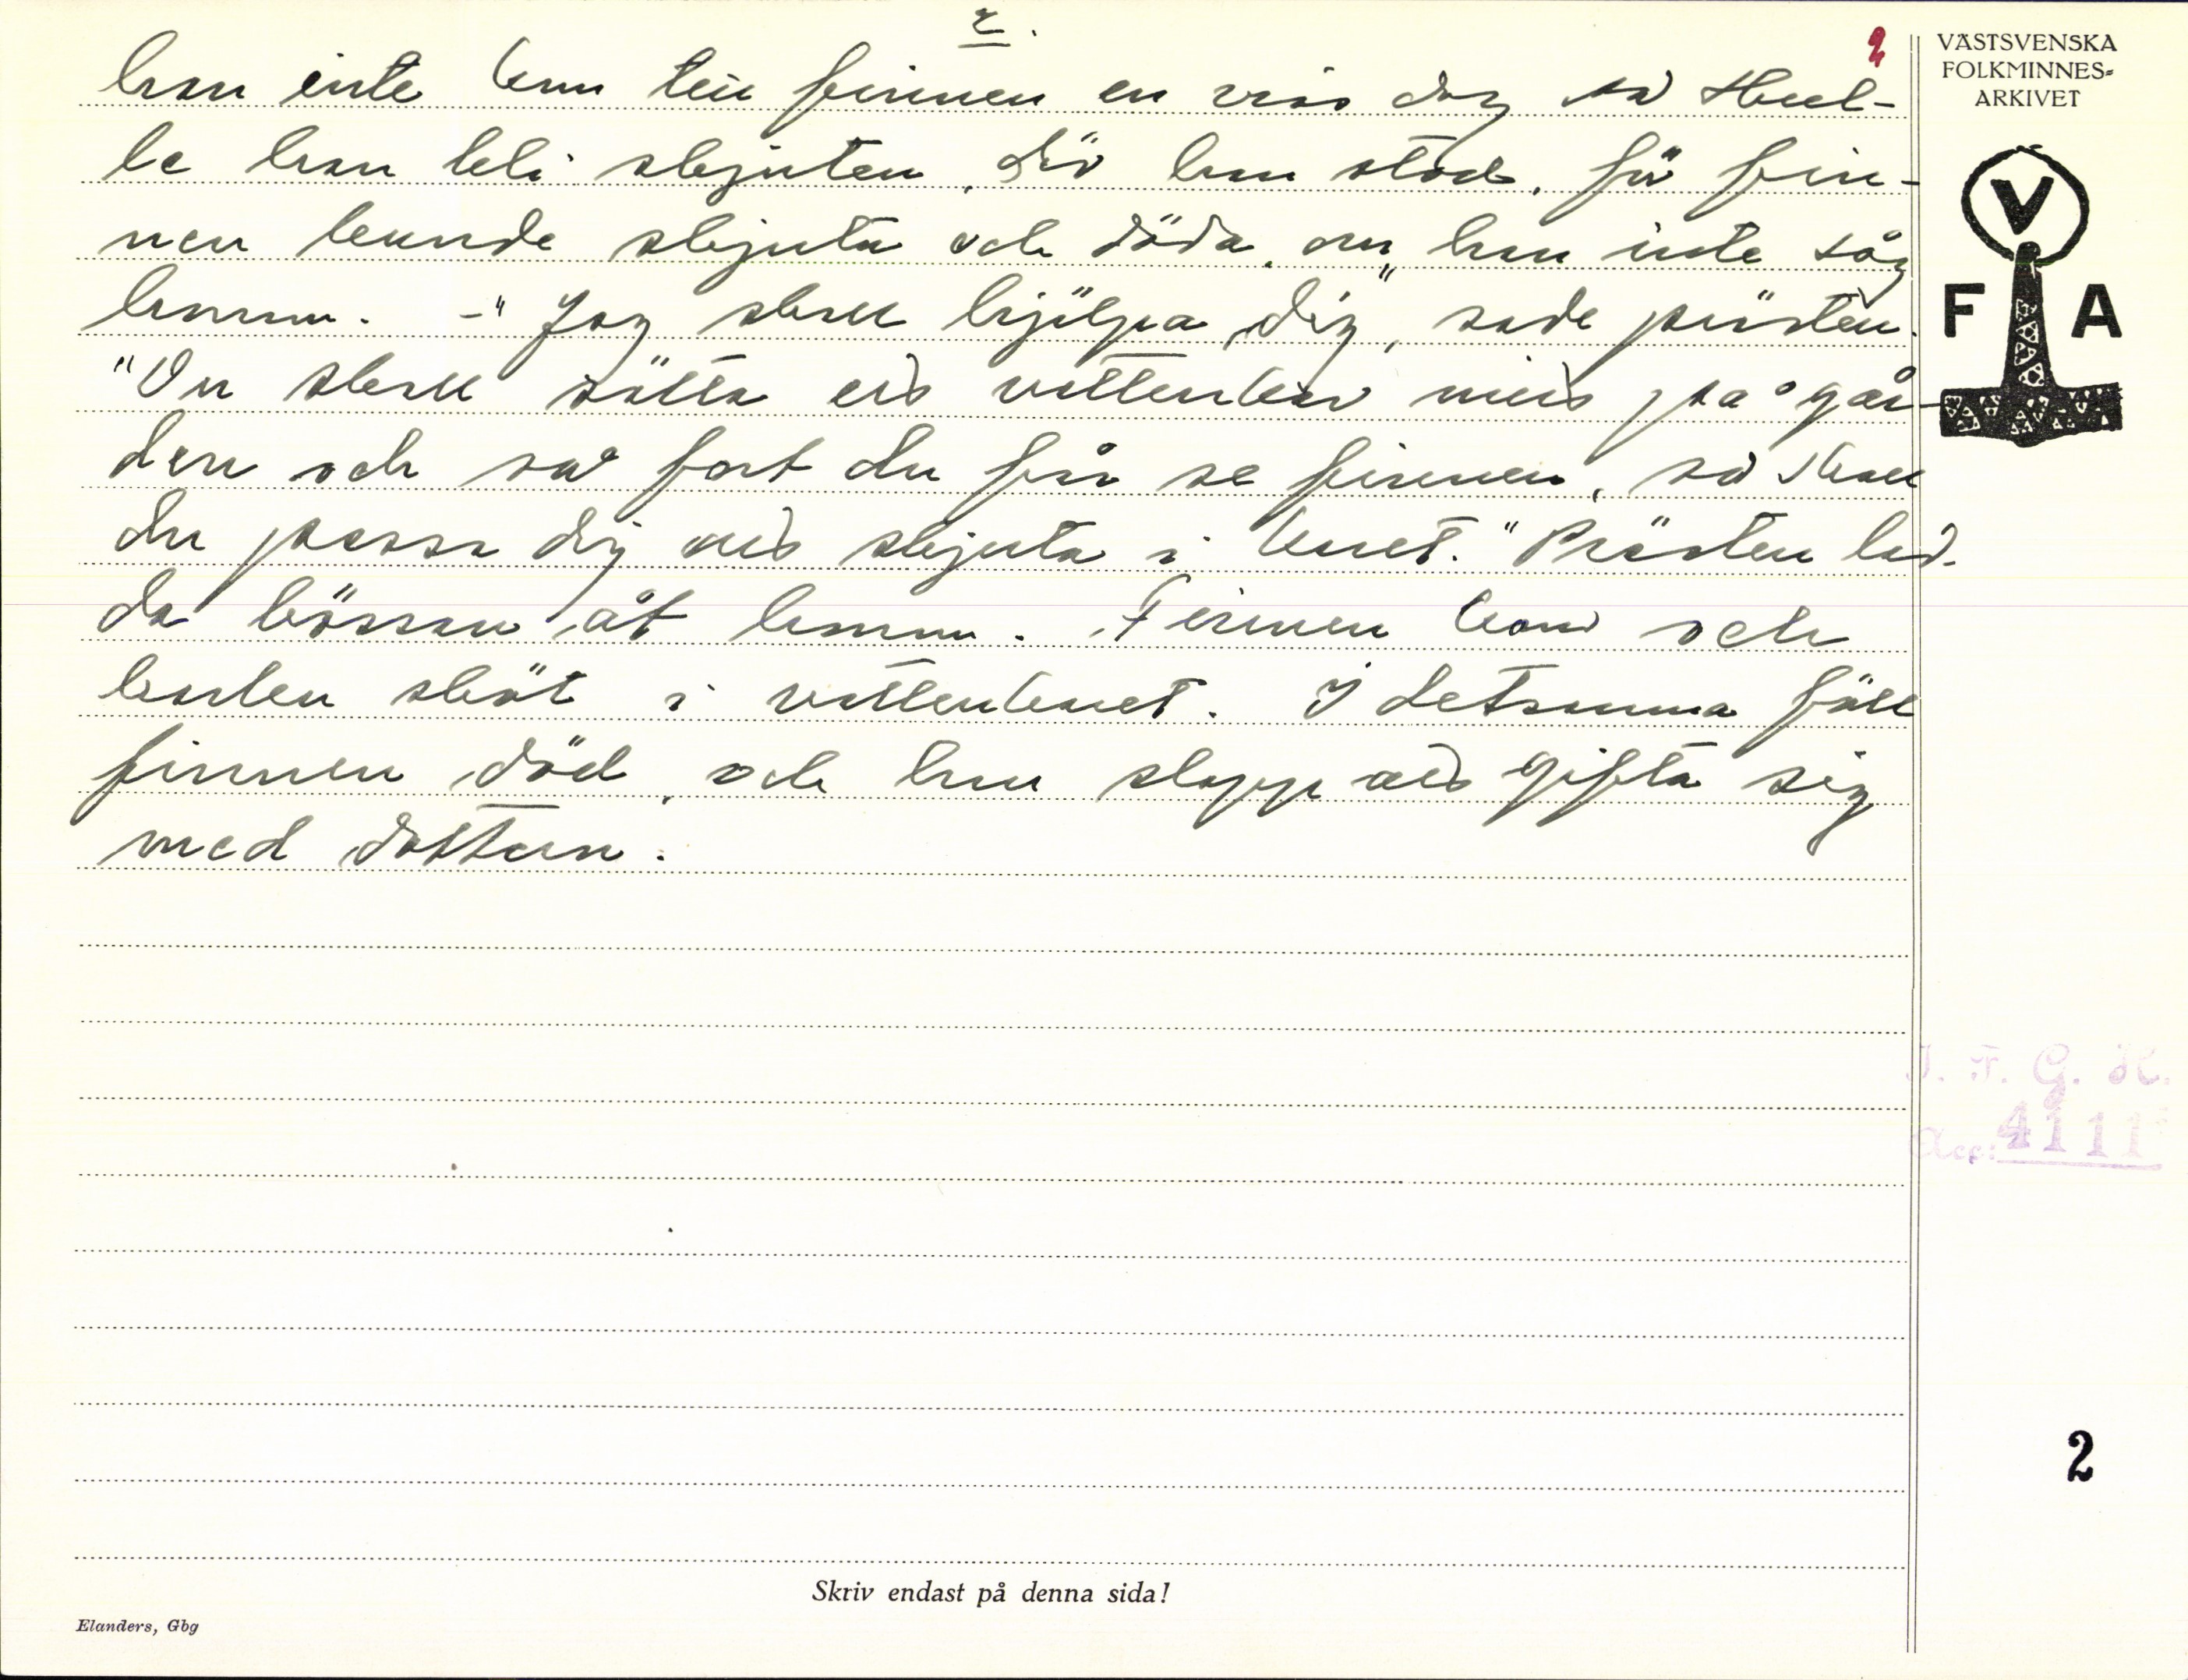 2.
2
han inte kom till finnen en viss dag så skul-
le han bli skjuten, där han stod, för fin-
nen kunde skjuta och döda, om han inte såg
honom. - "Jag skall hjälpa dig", sade prästen.
"Du skall sätta ett vattenkar mitt på går-
den och så fort du får se finnen, så skall
du passa dig att skjuta i karet." Prästen lad-
da bössan åt honom. Finnen kom och
karlen sköt i vattenkaret. I detsamma föll
finnen död, och han slapp att gifta sig
med dottern.
VÄSTSVENSKA
FOLKMINNES-
ARKIVET
V
F A
I. F. G. H.
Acc: 4111
2
Skriv endast på denna sida!
Elanders, Gbg